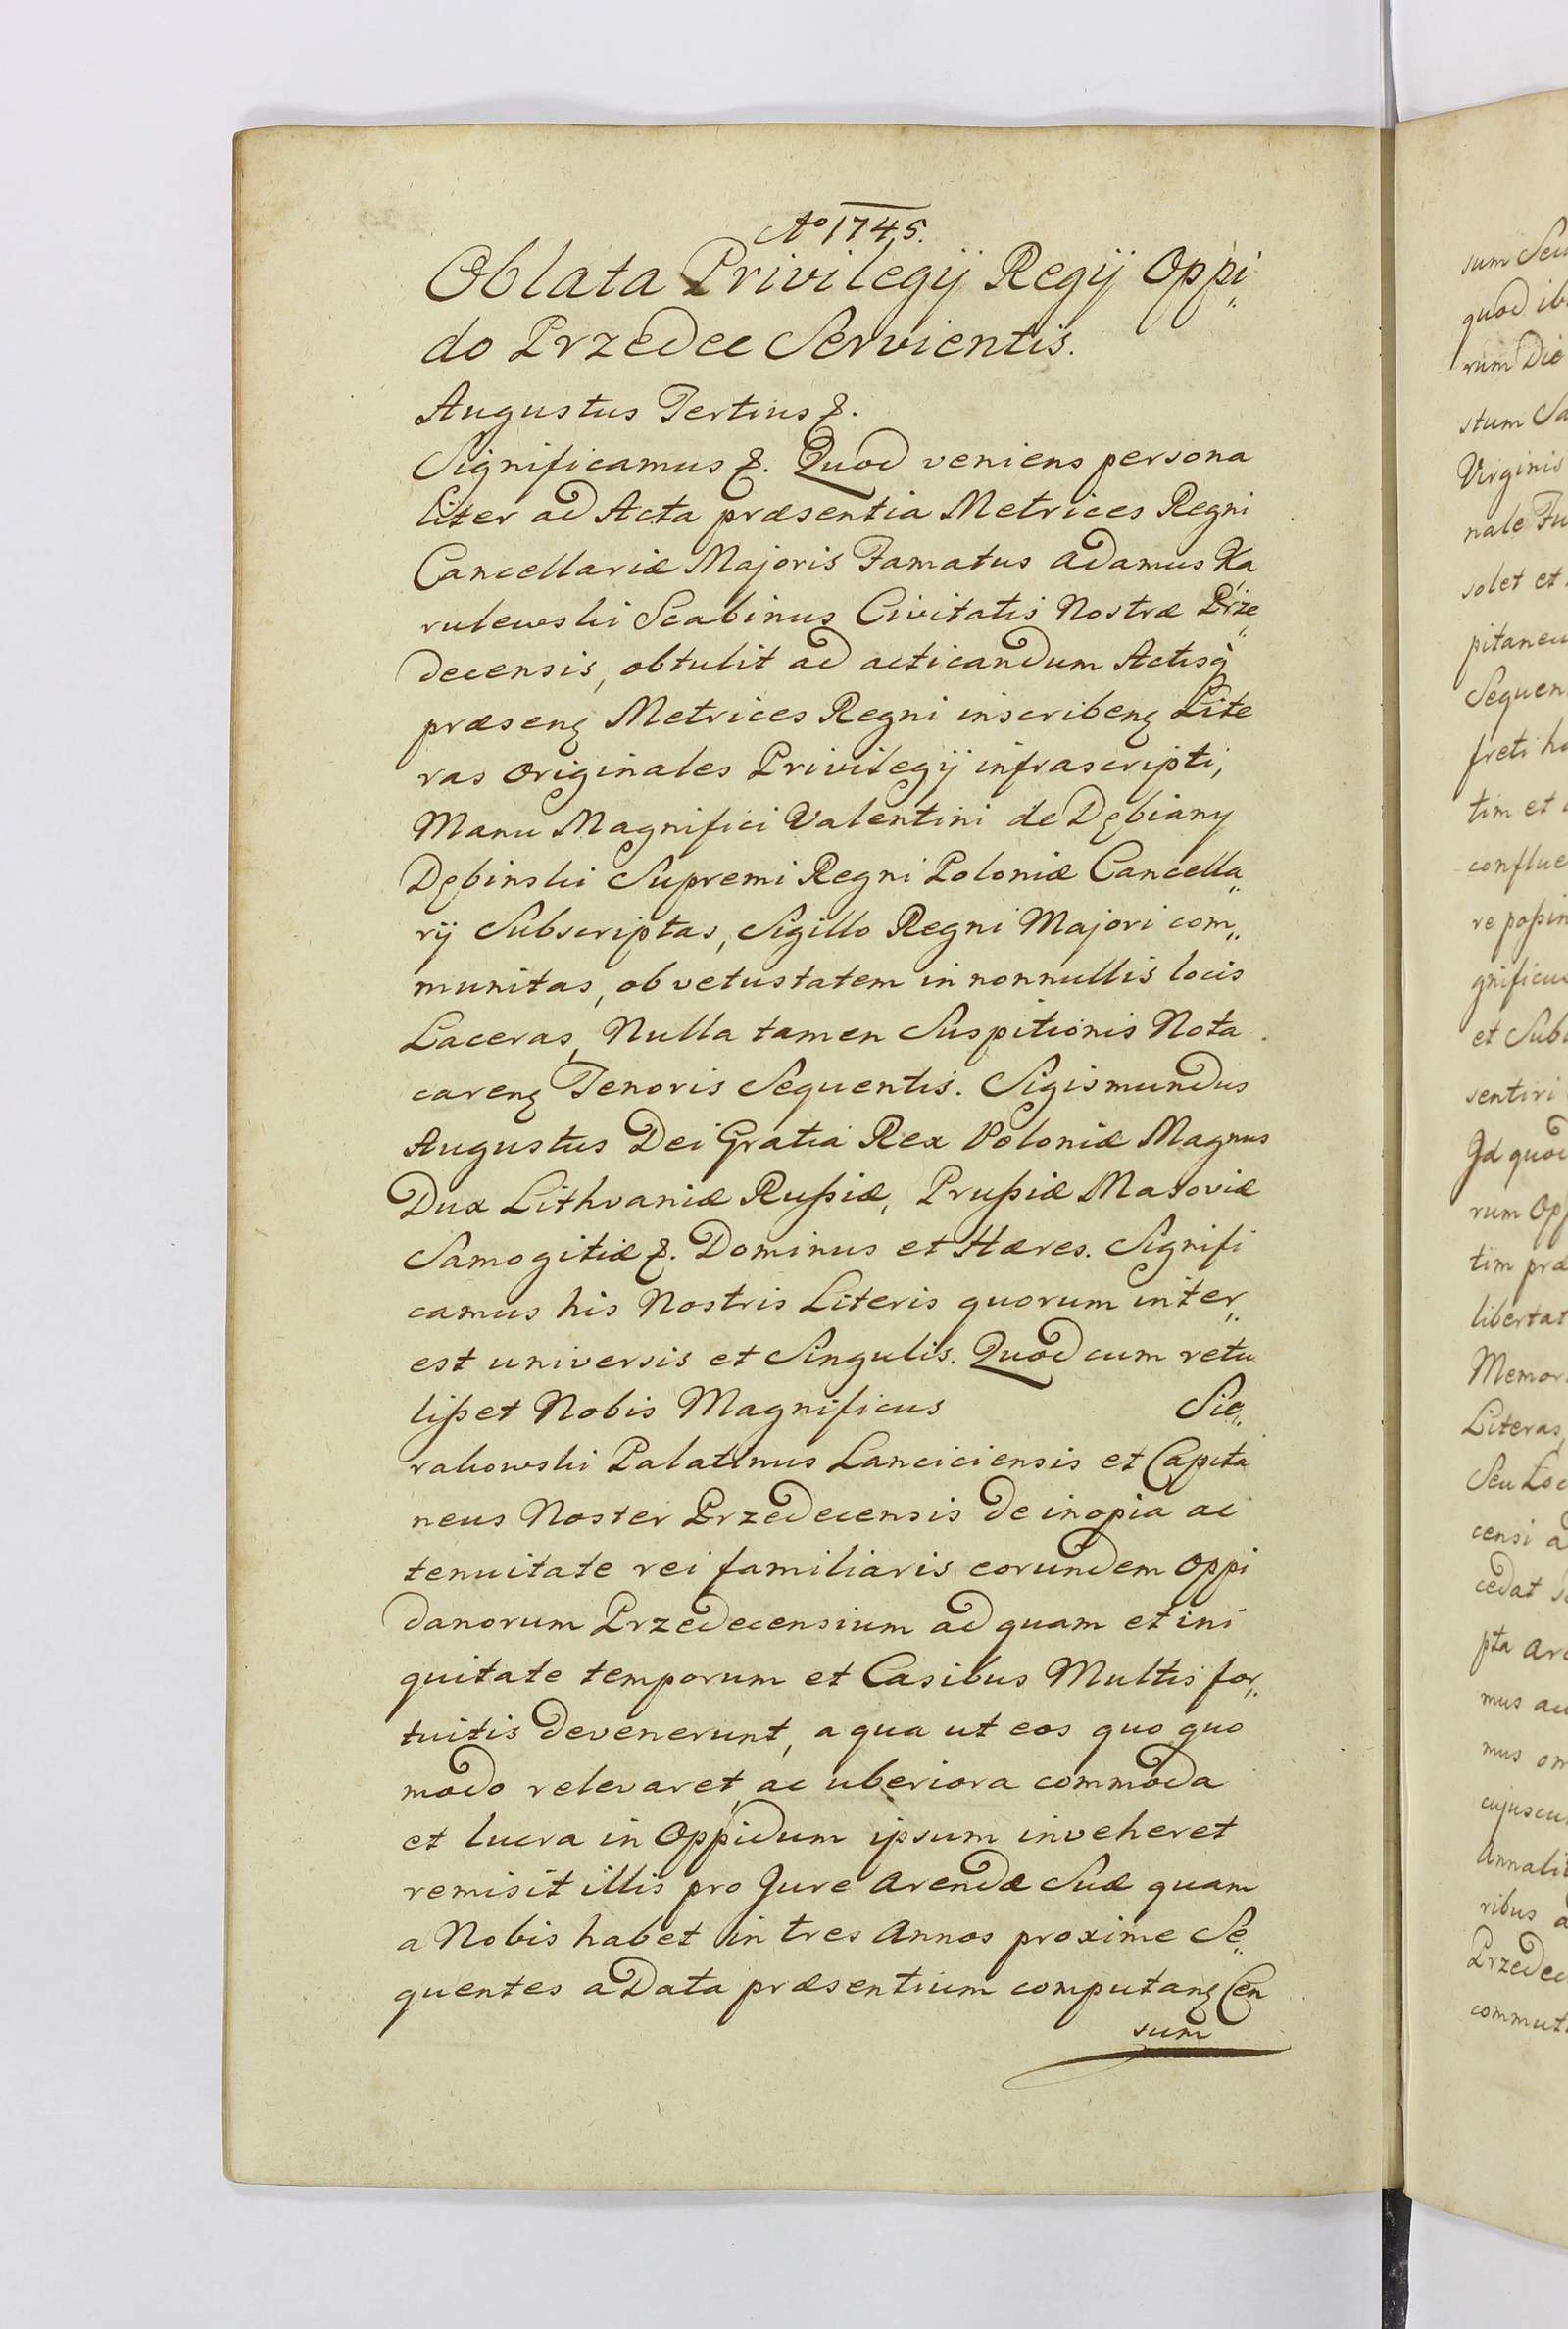 Aº 1745.
Oblata Privilegij Regij Oppi„
do Przedec Servientis.
Augustus Tertius &.
Significamus &. Quod veniens persona
liter ad Acta præsentia Metrices Regni
Cancellariæ Majoris Famatus Adamus Ka
rulewski Scabinus Civitatis Nostræ Prze„
decensis, obtulit ad acticandum Actisq́
præsenꝫ Metrices Regni inscribenꝫ Lite
ras Originales Privilegij infrascripti,
Manu Magnifici Valentini de Dębiany
Dębinski Supremi Regni Poloniæ Cancella„
rij Subscriptas, Sigillo Regni Majori com„
munitas, ob vetustatem in nonnullis locis
Laceras, Nulla tamen Suspitionis Nota
carenꝫ Tenoris Sequentis. Sigismundus
Augustus Dei Gratia Rex Poloniæ Magnus
Dux Lithvaniæ Rußiæ, Prußiæ Masoviæ
Samogitiæ &. Dominus et Hæres. Signifi
camus his Nostris Literis quorum inter„
est universis et Singulis. Quod cum retu
lißet Nobis Magnificus Sie„
rakowski Palatinus Lanciciensis et Capita
neus Noster Przedecensis de inopia ac
tenuitate rei familiaris eorundem Oppi
danorum Przedecensium ad quam et ini
quitate temporum et Casibus Multis for„
tuitis devenerunt, a qua ut eos quo quo
modo relevaret, ac uberiora commoda
et lucra in Oppidum ipsum inveheret
remisit illis pro Jure Arendæ Suæ quam
a Nobis habet in tres Annos proxime Se„
quentes a Data præsentium computanꝫ Cen
sum
sum
quod
rum Die
stum
Virginis
nale
solet et
Sequen
freti
tim et
conflue
et
sentiri
Jd quod
rum Opp
tim præ
libertat
Memor
Literas,
Seu Loc
censi a
cedat
pta
mus
mus
ribus a
Przedec
commut